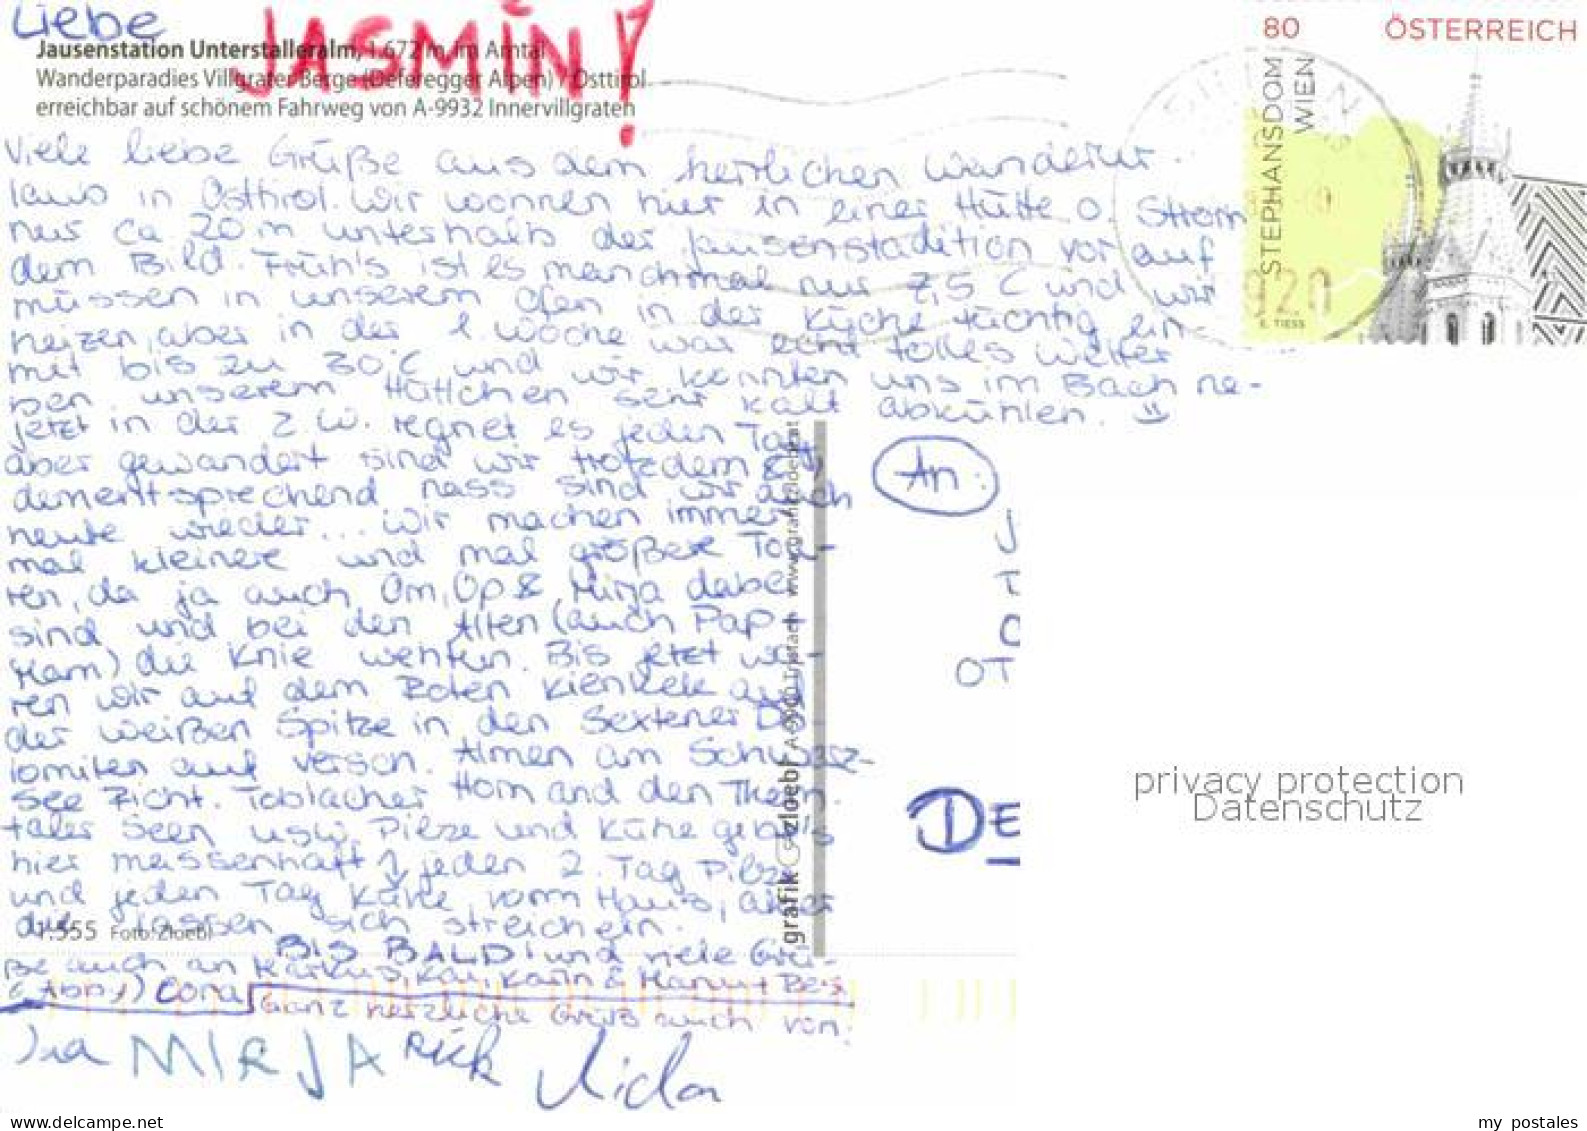 Liebe JASMIN!
Jausenstation Unterstalleralm, 1.672 m, im Arntal
Wanderparadies Villgrater Berge (Deferegger Alpen) / Osttirol
erreichbar auf schönem Fahrweg von A-9932 Innervillgraten
Viele liebe Grüße aus dem herrlichen Wanderur-
laub in Osttirol. Wir wohnen hier in einer Hütte o. Strom
nur ca 20 m unterhalb der Jausenstadition vor auf
dem Bild. Früh's ist es manchmal nur 7,5 C und wir
müssen in unserem Ofen in der Küche tüchtig ein-
heizen, aber in der 1. Woche war echt tolles Wetter
mit bis zu 30°C und wir konnten uns im Bach ne-
ben unserem Hüttchen sehr kalt abkühlen.
Jetzt in der 2. W. regnet es jeden Tag,
aber gewandert sind wir trotzdem &
dementsprechend nass sind wir auch
heute wieder... Wir machen immer
mal kleinere und mal größere Tou-
ren, da ja auch Om, Op & Mirja dabei
sind und bei den Alten (auch Pap +
Mam) die Knie wehtun. Bis jetzt wa-
ren wir auf dem Roten Kienkele auf
der weißen Spitze in den Sextener Do-
lomiten auf versch. Almen am Schwarz-
see Richt. Toblacher Horn and den Thurn.
taler Seen usw. Pilze und Kühe geb's
hier massenhaft jeden 2. Tag Pilze
und jeden Tag Kühe vorm Haus, aber
die lassen sich streicheln.
01.555 Foto: Zloebl
BIS BALD! und viele Grü-
ße auch an Markus, Kai, Karin & Manu + Be
(Abby) Cora
Ganz herzliche Grüß auch von:
MIRJA Rick
An:
J
OT
DE
grafik zloebl A-9907 Tristach www.grafikzloebl.at
80 ÖSTERREICH
STEPHANSDOM
WIEN
E. TIESS
privacy protection
Datenschutz
www.delcampe.net
my postales